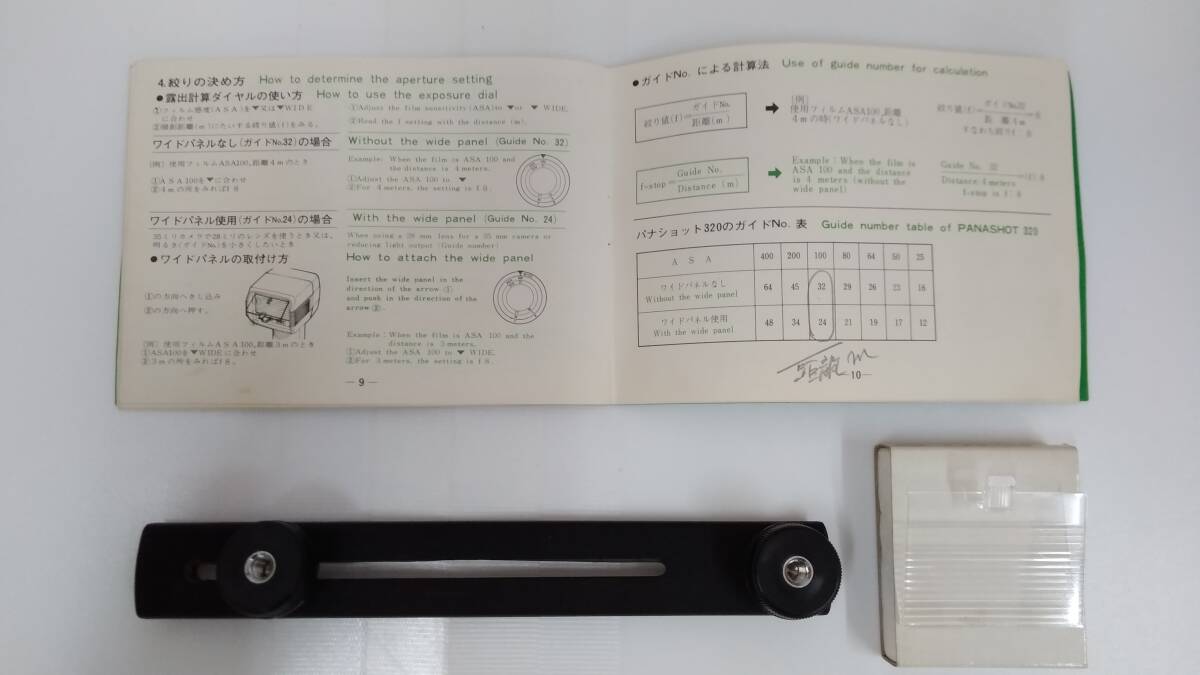 4.絞りの決め方 How to determine the aperture setting
●露出計算ダイヤルの使い方 How to use the exposure dial
①フィルム感度(ASA)を▼又は▼WIDE
に合わせ
②撮影距離(m)にたいする絞り値(f)をみる。
①Adjust the film sensitivity (ASA) to ▼or ▼ WIDE.
②Read the f setting with the distance (m).
ワイドパネルなし(ガイドNo.32)の場合
Without the wide panel (Guide No. 32)
(例) 使用フィルムASA100,距離4mのとき
①ASA100を▼に合わせ
②4mの所をみればf8
Example: When the film is ASA 100 and
the distance is 4 meters.
①Adjust the ASA 100 to ▼
②For 4 meters, the setting is f 8.
ワイドパネル使用(ガイドNo.24)の場合
With the wide panel (Guide No. 24)
35ミリカメラで28ミリのレンズを使うとき又は、
明るさ(ガイドNo.)を小さくしたいとき
When using a 28 mm lens for a 35 mm camera or
reducing light output (Guide number)
●ワイドパネルの取付け方
How to attach the wide panel
①の方向へさし込み
②の方向へ押す。
Insert the wide panel in the
direction of the arrow ①
and push in the direction of the
arrow ②.
(例) 使用フィルムASA100,距離3mのとき
①ASA100を▼WIDEに合わせ
②3mの所をみればf8。
Example: When the film is ASA 100 and the
distance is 3 meters.
①Adjust the ASA 100 to ▼ WIDE.
②For 3 meters, the setting is f 8.
—9—
●ガイドNo. による計算法 Use of guide number for calculation
絞り値(f)=ガイドNo./距離(m)
➡
(例)
使用フィルムASA100,距離
4mの時(ワイドパネルなし)
絞り値(f)=ガイドNo.32/距離4m=8
すなわち絞りf:8
f-stop=Guide No./Distance (m)
➡
Example: When the film is
ASA 100 and the distance
is 4 meters (without the
wide panel)
Guide No. 32/Distance 4 meters=(f):8
f-stop is f: 8
パナショット320のガイドNo. 表 Guide number table of PANASHOT 320
ASA 400 200 100 80 64 50 25
ワイドパネルなし
Without the wide panel 64 45 32 29 26 23 16
ワイドパネル使用
With the wide panel 48 34 24 21 19 17 12
距離 m
—10—